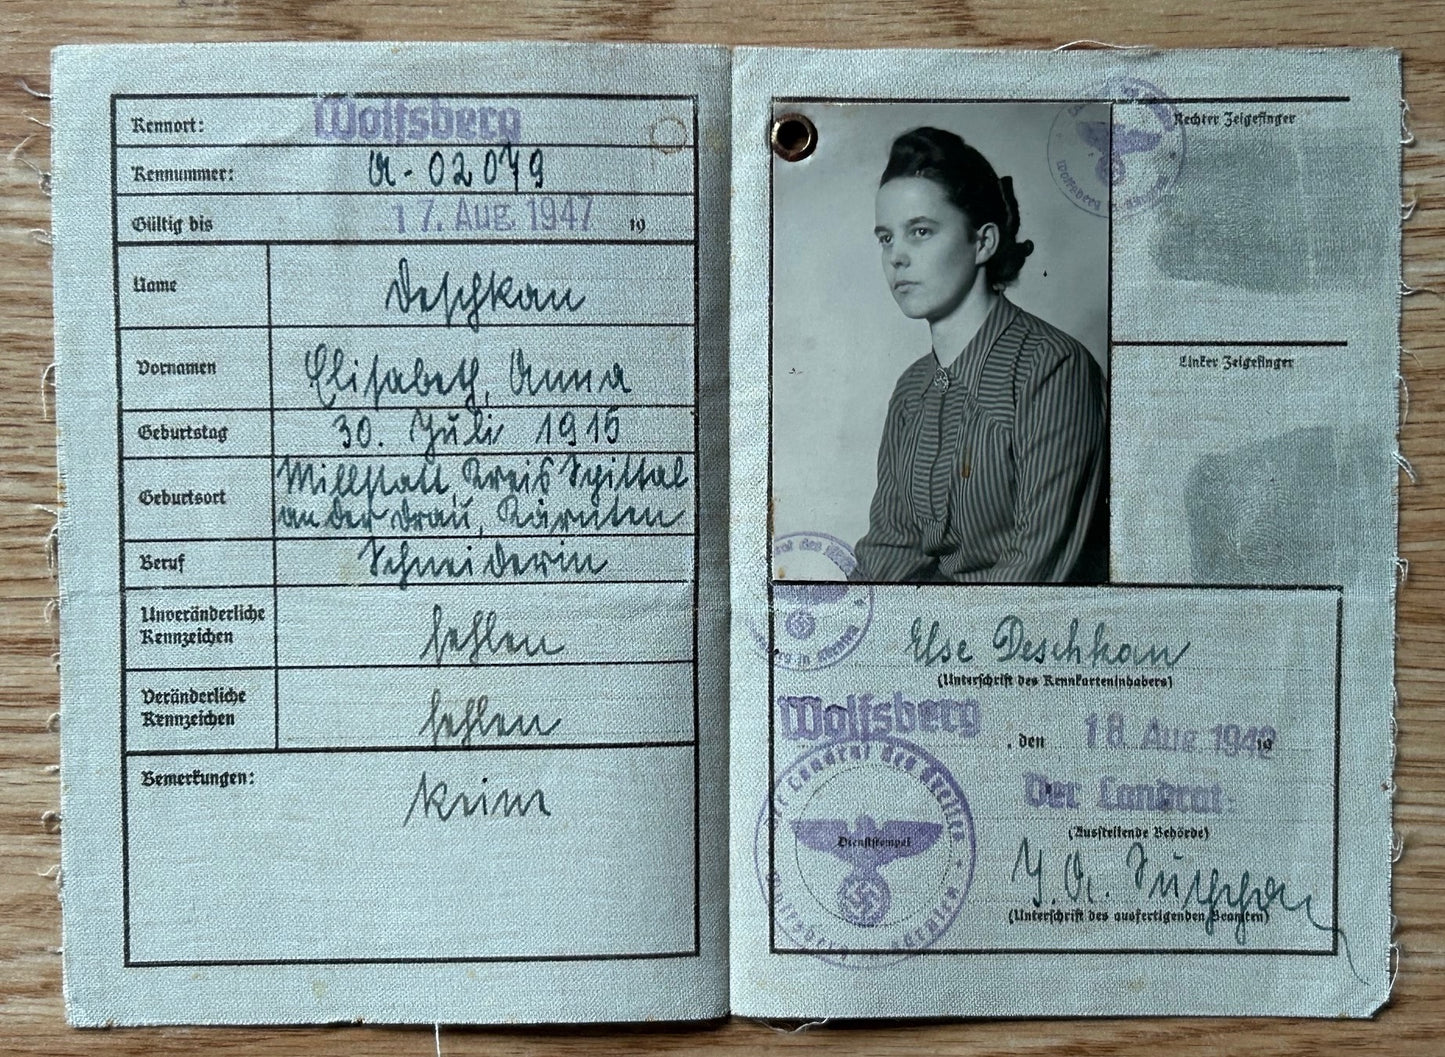 Kennort:
Wolfsberg
Kennummer:
A-02079
Gültig bis
17. Aug. 1947
19
Name
Deschkan
Vornamen
Elisabeth, Anna
Geburtstag
30. Juli 1916
Geburtsort
Millstatt, Kreis Spittal
an der Drau, Kärnten
Beruf
Schneiderin
Unveränderliche
Kennzeichen
fehlen
Veränderliche
Kennzeichen
fehlen
Bemerkungen:
Keine
Rechter Zeigefinger
Wolfsberg in Kärnten
Linker Zeigefinger
Else Deschkan
(Unterschrift des Kennkarteninhabers)
Wolfsberg
, den
18. Aug. 1942
19
Der Landrat des Kreises
Wolfsberg in Kärnten
Dienststempel
Der Landrat:
(Ausstellende Behörde)
J. A.
(Unterschrift des ausfertigenden Beamten)